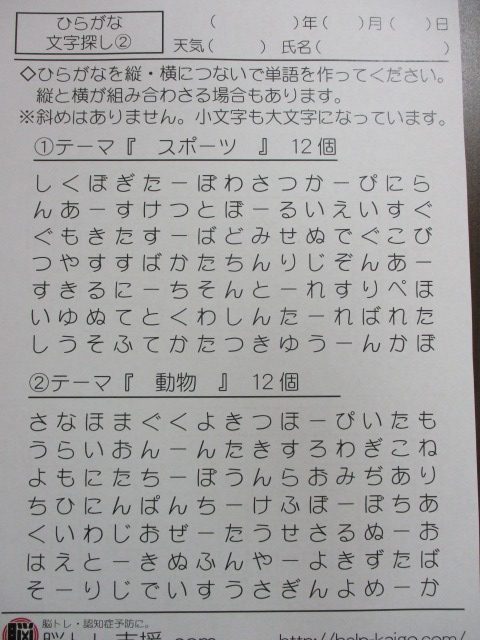 ひらがな
文字探し②
(　　　)年(　)月(　)日
天気(　　)　氏名(　　　　　　)
◇ひらがなを縦・横につないで単語を作ってください。
縦と横が組み合わさる場合もあります。
※斜めはありません。小文字も大文字になっています。
①テーマ『　スポーツ　』　12個
しくぼぎたーぽわさつかーぴにら
んあーすけつとぼーるいえいすぐ
ぐもきたすーばどみせぬでぐこび
つやすすばかたちんりじぞんあー
すきるにーちそんとーれすりぺほ
いゆぬてとくわしんたーればれた
しうそふてかたつきゆうーんかぼ
②テーマ『　動物　』　12個
さなほまぐくよきつほーぴいたも
うらいおんーんたきすろわぎこね
よもにたちーぽうんらおみぢあり
ちひにんぱんちーけふぽーぽちあ
くいわじおぜーたうせさるぬーお
はえとーきぬふんやーよきずたば
そーりじでいすうさぎんーよめーか
脳トレ・認知症予防に。
http://help-kaigo.com/